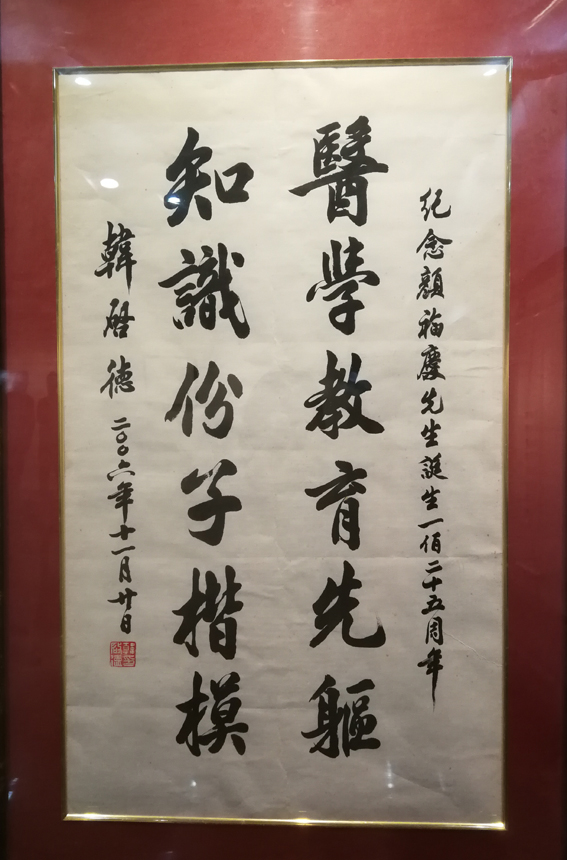 紀念顏福慶先生誕生一佰二十五周年
醫學教育先軀
知識份子楷模
韓啓德 二〇〇六年十一月廿日